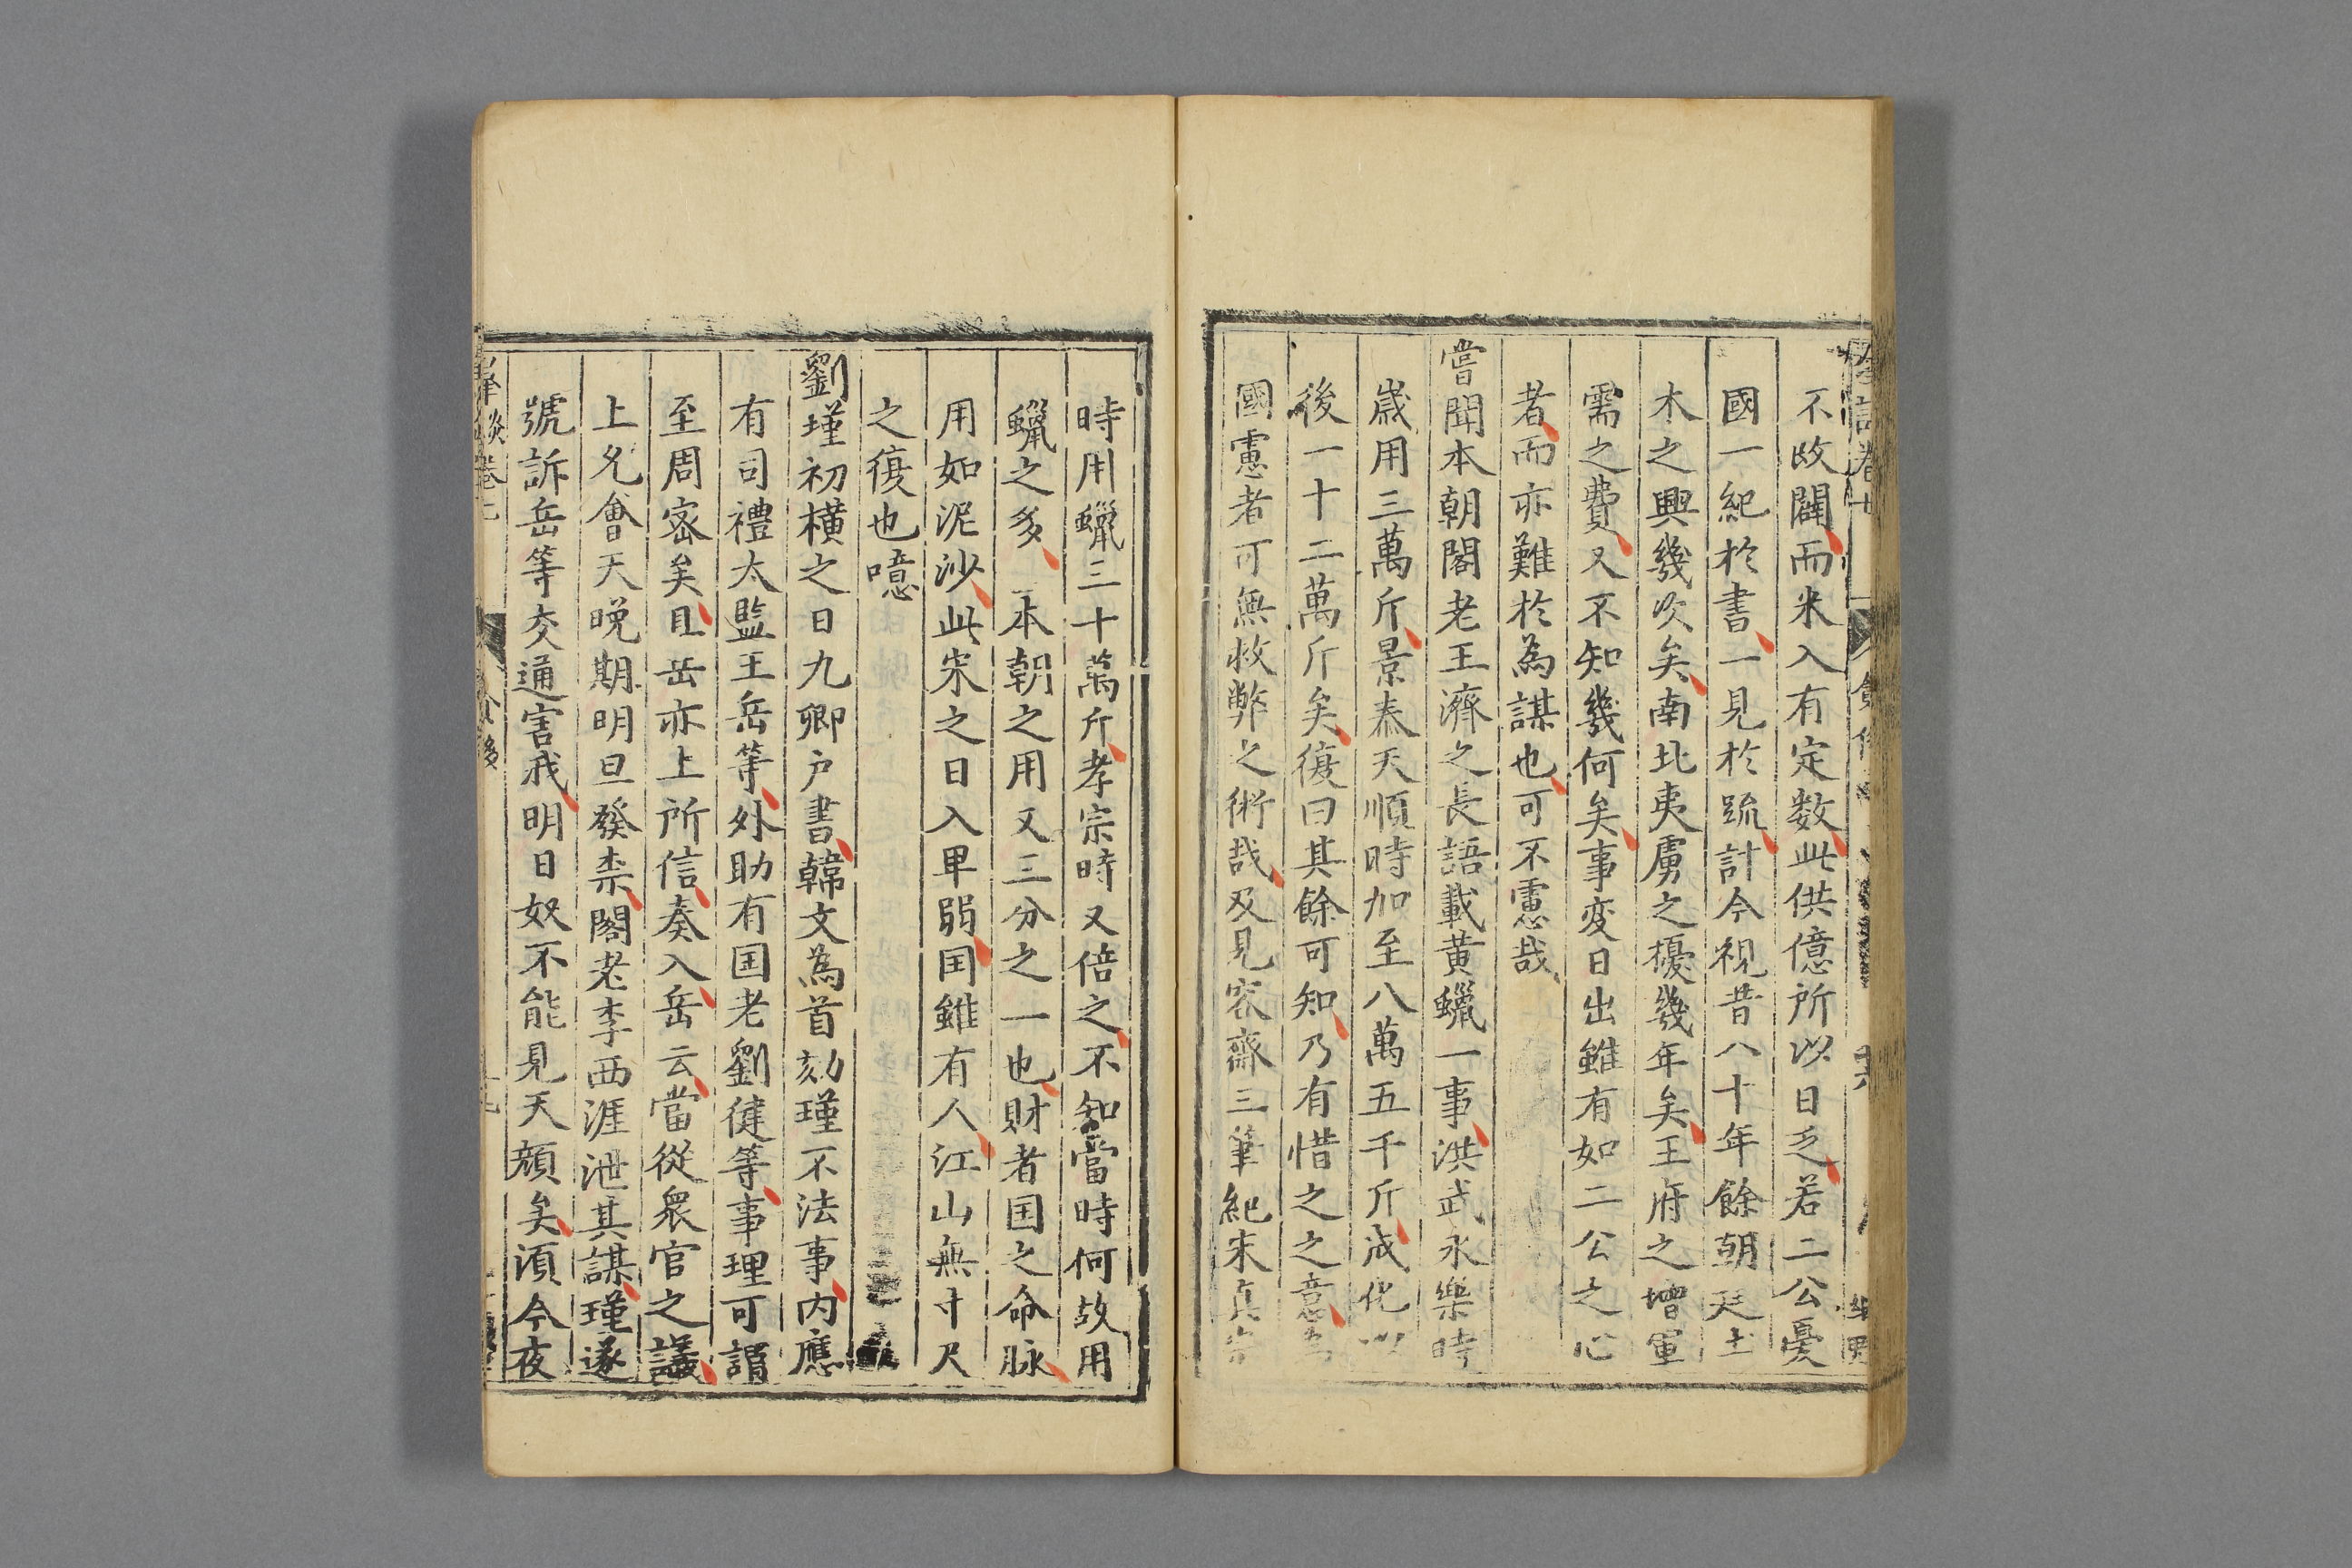 不改闢而米入有定数此供億所以日乏若二公憂
國一紀於書一見於疏計今視昔八十年餘朝廷土
木之興幾次矣南北夷虜之擾幾年矣王府之增軍
需之費又不知幾何矣事变日出雖有如二公之心
者而亦難於為謀也可不慮哉
嘗聞本朝閣老王濟之長語載黃蠟一事洪武永樂時
歲用三萬斤景泰天順時加至八萬五千斤成化以
後一十二萬斤矣復曰其餘可知乃有惜之之意為
國慮者可無救弊之術哉及見容齋三筆紀宋真宗
時用蠟三十萬斤孝宗時又倍之不知當時何故用
蠟之多本朝之用又三分之一也財者国之命脉
用如泥沙此宋之日入卑弱国雖有人江山無寸尺
之復也噫
劉瑾初橫之日九卿户書韓文為首劾瑾不法事内應
有司禮太監王岳等外助有国老劉健等事理可謂
至周宻矣且岳亦上所信奏入岳云當從衆官之議
上允會天晚期明旦發柰閣老李西涯泄其謀瑾遂
號訴岳等交通害我明日奴不能見天顔矣湏今夜